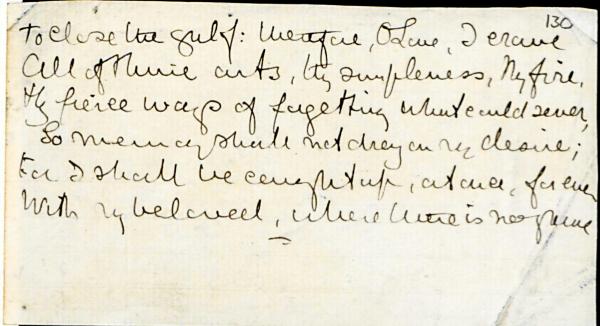 130
To close the gulf: therefore, O Love, I crave
All of thine arts, thy simpleness, thy fire,
thy fierce ways of forgetting what could sever,
So memory shall not drag on my desire;
For I shall be caught up, at once, for ever
With my beloved, where there is no grave